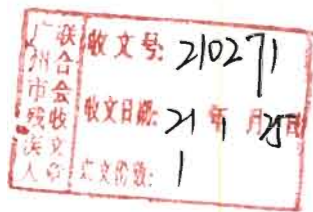 广州市残疾人
联合会收文章
收文号: 210271
收文日期: 21 年 1 月 25 日
文份数: 1